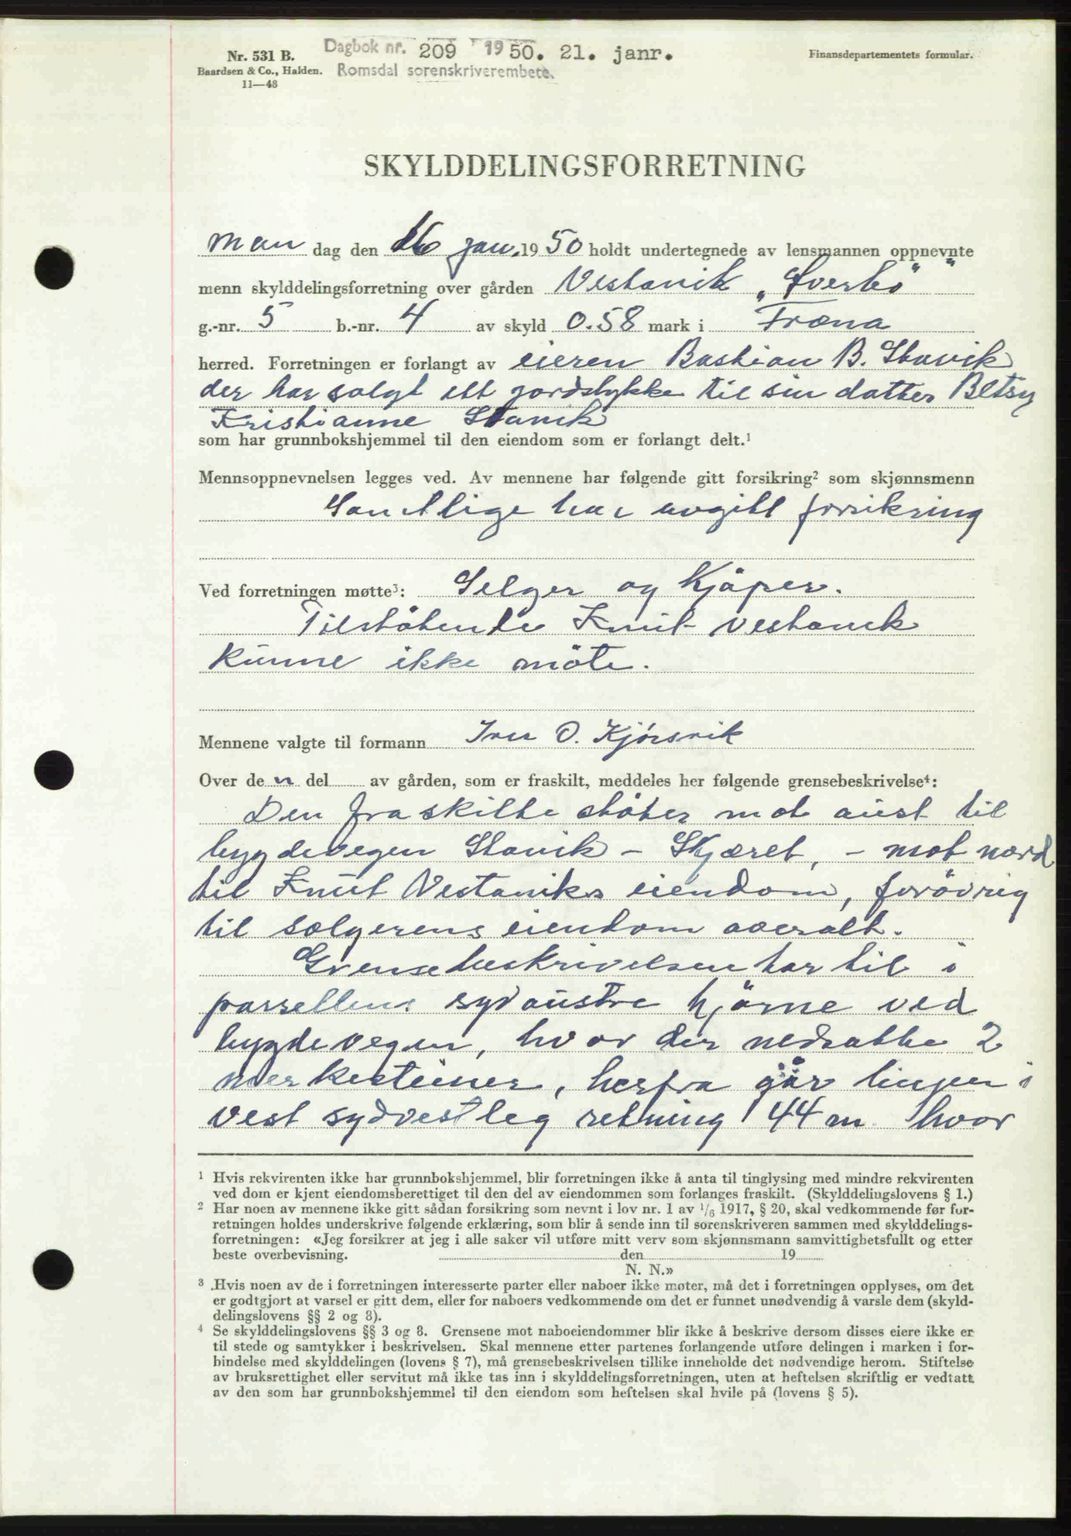 Nr. 531 B.
Baardsen & Co., Halden.
11—48
Dagbok nr. 209 1950. 21. janr.
Romsdal sorenskriverembete.
Finansdepartementets formular.
SKYLDDELINGSFORRETNING
Man dag den 16 jan. 1950 holdt undertegnede av lensmannen oppnevnte
menn skylddelingsforretning over gården Vestavik „Sverbø"
g.-nr. 5 b.-nr. 4 av skyld 0.58 mark i Fræna
herred. Forretningen er forlangt av eieren Bastian B. Stavik
der har solgt ett jordstykke til sin datter Betsy
Kristianne Stavik
som har grunnbokshjemmel til den eiendom som er forlangt delt.¹
Mennsoppnevnelsen legges ved. Av mennene har følgende gitt forsikring² som skjønnsmenn
Samtlige har avgitt forsikring
Ved forretningen møtte³: Selger og Kjøper.
Tilstøtende Knut Vestavik
kunne ikke møte.
Mennene valgte til formann Iver O. Kjørsvik
Over den del av gården, som er fraskilt, meddeles her følgende grensebeskrivelse⁴:
Den fraskilte støter mot aust til
bygdevegen Stavik – Skjæret, – mot nord
til Knut Vestaviks eiendom, forøvrig
til sælgerens eiendom overalt.
Grensebeskrivelsen tar til i
parsellens sydaustre hjørne ved
bygdevegen, hvor der nedsatte 2
merkesteiner, herfra går linjen i
vest sydvestleg retning 44 m hvor
¹ Hvis rekvirenten ikke har grunnbokshjemmel, blir forretningen ikke å anta til tinglysing med mindre rekvirenten
ved dom er kjent eiendomsberettiget til den del av eiendommen som forlanges fraskilt. (Skylddelingslovens § 1.)
² Har noen av mennene ikke gitt sådan forsikring som nevnt i lov nr. 1 av 1/6 1917, § 20, skal vedkommende før for-
retningen holdes underskrive følgende erklæring, som blir å sende inn til sorenskriveren sammen med skylddelings-
forretningen: «Jeg forsikrer at jeg i alle saker vil utføre mitt verv som skjønnsmann samvittighetsfullt og etter
beste overbevisning. den 19
N. N.»
³ Hvis noen av de i forretningen interesserte parter eller naboer ikke møter, må det i forretningen opplyses, om det
er godtgjort at varsel er gitt dem, eller for naboers vedkommende om det er funnet unødvendig å varsle dem (skyld-
delingslovens §§ 2 og 8).
⁴ Se skylddelingslovens §§ 3 og 8. Grensene mot naboeiendommer blir ikke å beskrive dersom disses eiere ikke er
til stede og samtykker i beskrivelsen. Skal mennene etter partenes forlangende utføre delingen i marken i for-
bindelse med skylddelingen (lovens § 7), må grensebeskrivelsen tillike inneholde det nødvendige herom. Stiftelse
av bruksrettighet eller servitut må ikke tas inn i skylddelingsforretningen, uten at heftelsen skriftlig er vedtatt
av den som har grunnbokshjemmel til den eiendom som heftelsen skal hvile på (lovens § 5).